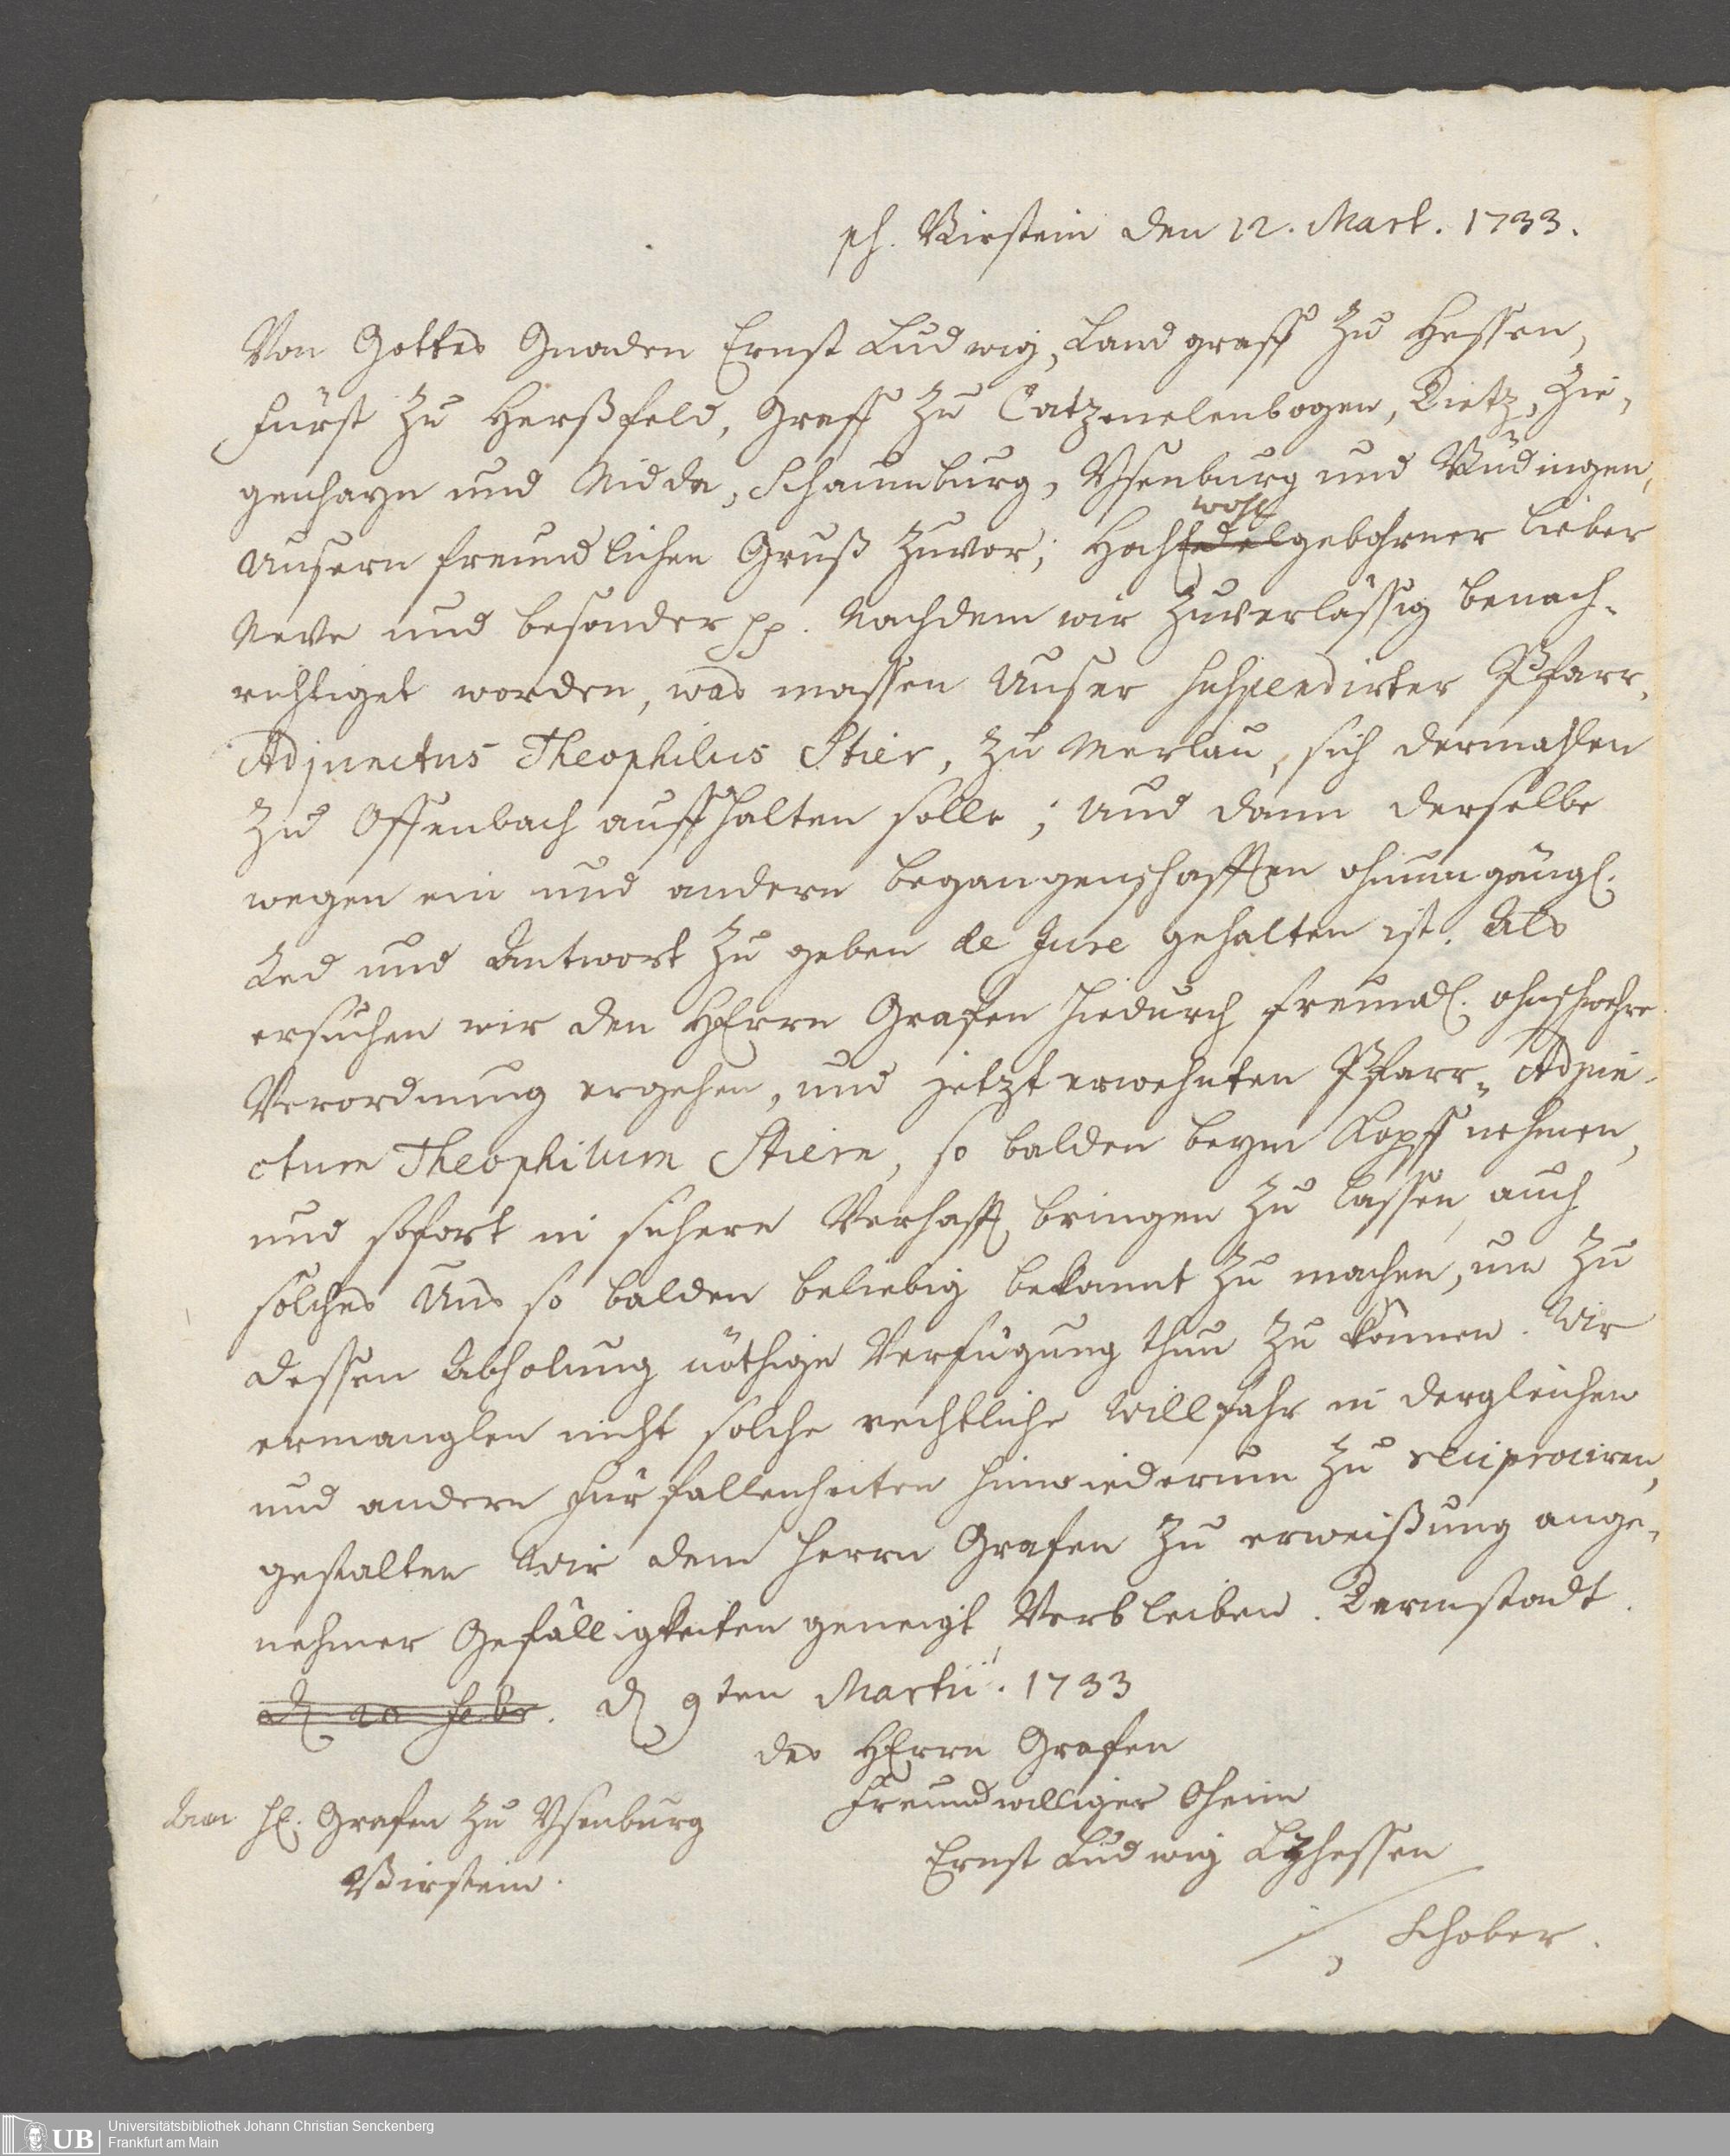 ps. Birstein den 12. Mart. 1733.
Von Gottes Gnaden Ernst Ludwig, Landgraff zu Hessen,
Fürst zu Herßfeld, Graff zu Catzenelenbogen, Dietz, Zie-
genhayn und Nidda, Schaumburg, Ysenburg und Büdingen,
wohl
Unsern freundlichen Gruß zuvor; Hochedelgebohrner lieber
Neve und besonder pp. Nachdem wir zuverlässig benach-
richtiget worden, was massen Unser suspendirter Pfarr-
Adjunctus Theophilus Stier, zu Merlau, sich dermahlen
zu Offenbach auffhalten solle; und dann derselbe
wegen ein und andern begangenschafften ohnumgängl.
Red und Antwort zu geben de Jure gehalten ist. Als
ersuchen wir den HErrn Grafen hiedurch freundl. ohnschwehre
Verordnung ergehen, und jetzt erwehnten Pfarr-Adjun-
ctum Theophilum Stiern, so balden beym Kopff nehmen,
und sofort in sichern Verhafft bringen zu lassen, auch
solches Uns so balden beliebig bekannt zu machen, um zu
dessen Abholung nöthige Verfügung thun zu können. Wir
ermanglen nicht solche rechtliche Willfahr in dergleichen
und andern fürfallenheiten hinwiederum zu reciprociren,
gestalten Wir dem Herrn Grafen zu erweißung ange-
nehmer Gefälligkeiten geneigt Verbleiben. Darmstadt.
d. 20 Febr. d. 9ten Martii. 1733
des HErrn Grafen
Freundwilliger Oheim
Ernst Ludwig LzHessen
H. Grafen zu Ysenburg
Birstein.
Schober.
UB
Universitätsbibliothek Johann Christian Senckenberg
Frankfurt am Main